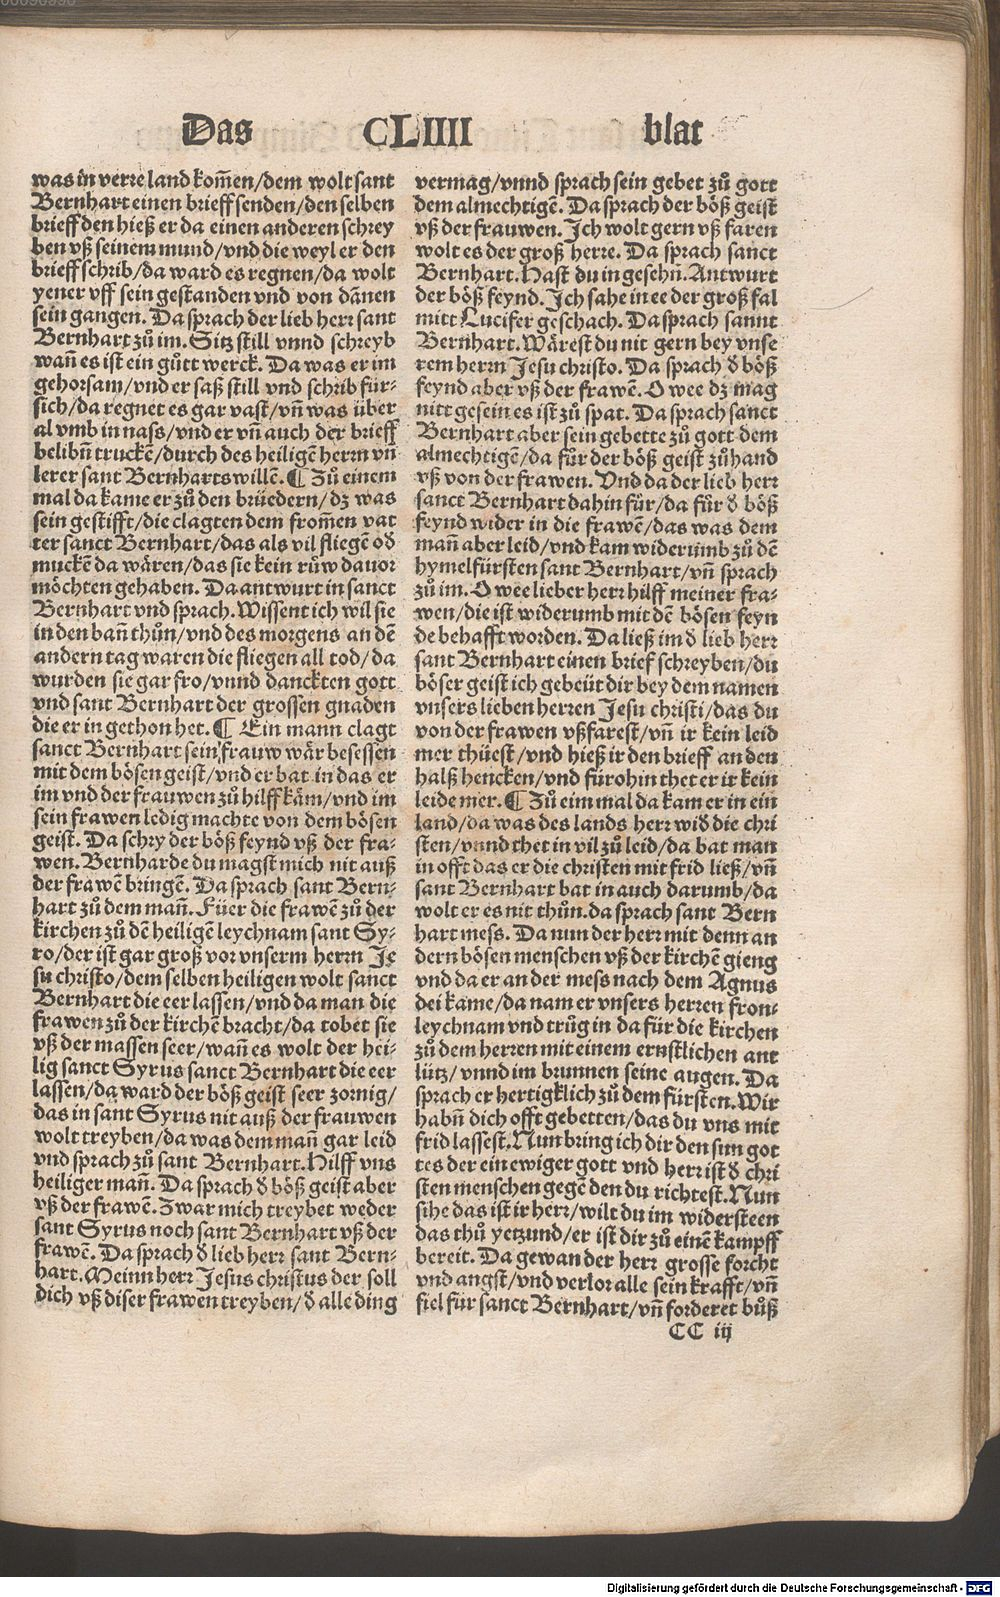 Das CLIIII blat
was in verre land kom̃en/dem wolt sant
Bernhart einen brieff senden/den selben
brieff den hieß er da einen anderen schrey
ben vß seinem mund/vnd die weyl er den
brieff schrib/da ward es regnen/da wolt
yener vff sein gestanden vnd von dãnen
sein gangen. Da sprach der lieb herr sant
Bernhart zů im. Sitz still vnnd schreyb
wañ es ist ein gůtt werck. Da was er im
gehorsam/vnd er saß still vnd schrib für-
sich/da regnet es gar vast/vñ was über
al vmb in nass/vnd er vñ auch der brieff
belibñ truckẽ/durch des heiligen herrn vñ
lerer sant Bernharts willẽ. ¶ Zů einem
mal da kame er zů den brüedern/dz was
sein gestifft/die clagten dem from̃en vat
ter sanct Bernhart/das als vil fliegẽ od̾
muckẽ da wären/das sie kein růw dauor
möchten gehaben. Da antwurt in sanct
Bernhart vnd sprach. Wissent ich wil sie
in den bañ thůn/vnd des morgens an dẽ
andern tag waren die fliegen all tod/da
wurden sie gar fro/vnnd danckten gott
vnd sant Bernhart der grossen gnaden
die er in gethon het. ¶ Ein mann clagt
sanct Bernhart sein frauw wär besessen
mit dem bösen geist/vnd er bat in das er
im vnd der frauwen zů hilff käm/vnd im
sein frawen ledig machte von dem bösen
geist. Da schry der böß feynd vß der fra-
wen. Bernharde du magst mich nit auß
der frawẽ bringẽ. Da sprach sant Bern-
hart zů dem mañ. Füer die frawẽ zů der
kirchen zů dẽ heiligẽ leychnam sant Sy-
ro/der ist gar groß vor vnserm herrn Je
su christo/dem selben heiligen wolt sanct
Bernhart die eer lassen/vnd da man die
frawen zů der kirchẽ bracht/da tobet sie
vß der massen seer/wañ es wolt der hei-
lig sanct Syrus sanct Bernhart die eer
lassen/da ward der böß geist seer zornig/
das in sant Syrus nit auß der frauwen
wolt treyben/da was dem mañ gar leid
vnd sprach zů sant Bernhart. Hilff vns
heiliger mañ. Da sprach d̾ böß geist aber
vß der frawẽ. Zwar mich treybet weder
sant Syrus noch sant Bernhart vß der
frawẽ. Da sprach d̾ lieb herr sant Bern-
hart. Meinn herr Jesus christus der soll
dich vß diser frawen treyben/d̾ alle ding
vermag/vnnd sprach sein gebet zů gott
dem almechtigẽ. Da sprach der böß geist
vß der frauwen. Ich wolt gern vß faren
wolt es der groß herre. Da sprach sanct
Bernhart. Hast du in gesehñ. Antwurt
der böß feynd. Ich sahe in ee der groß fal
mitt Lucifer geschach. Da sprach sannt
Bernhart. Wärest du nit gern bey vnse
rem herrn Jesu christo. Da sprach d̾ böß
feynd aber vß der frawẽ. O wee dz mag
nitt gesein es ist zů spat. Da sprach sanct
Bernhart aber sein gebette zů gott dem
almechtigẽ/da fůr der böß geist zůhand
vß von der frawen. Vnd da der lieb herr
sanct Bernhart dahin für/da fůr d̾ böß
feynd wider in die frawẽ/das was dem
mañ aber leid/vnd kam widerumb zů dẽ
hymelfürsten sant Bernhart/vñ sprach
zů im. O wee lieber herr hilff meiner fra-
wen/die ist widerumb mit dẽ bösen feyn
de behafft worden. Da ließ im d̾ lieb herr
sant Bernhart einen brief schreyben/du
böser geist ich gebeüt dir bey dem namen
vnsers lieben herren Jesu christi/das du
von der frawen vßfarest/vñ ir kein leid
mer thüest/vnd hieß ir den brieff an den
halß hencken/vnd fürohin thet er ir kein
leide mer. ¶ Zů eim mal da kam er in ein
land/da was des lands herr wid̾ die chri
sten/vnnd thet in vil zů leid/da bat man
in offt das er die christen mit frid ließ/vñ
sant Bernhart bat in auch darumb/da
wolt er es nit thůn. da sprach sant Bern
hart mess. Da nun der herr mit denn an
dern bösen menschen vß der kirchẽ gieng
vnd da er an der mess nach dem Agnus
dei kame/da nam er vnsers herren fron-
leychnam vnd trůg in da für die kirchen
zů dem herren mit einem ernstlichen ant
lütz/vnnd im brunnen seine augen. Da
sprach er hertigklich zů dem fürsten. Wir
habñ dich offt gebetten/das du vns mit
frid lassest. Nun bring ich dir den sun got
tes der ein ewiger gott vnd herr ist d̾ chri
sten menschen gegẽ den du richtest. Nun
sihe das ist ir herr/wilt du im widersteen
das thů yetzund/er ist dir zů einẽ kampff
bereit. Da gewan der herr grosse forcht
vnd angst/vnd verlor alle sein krafft/vñ
fiel für sanct Bernhart/vñ forderet bůß
CC iij
Digitalisierung gefördert durch die Deutsche Forschungsgemeinschaft - DFG